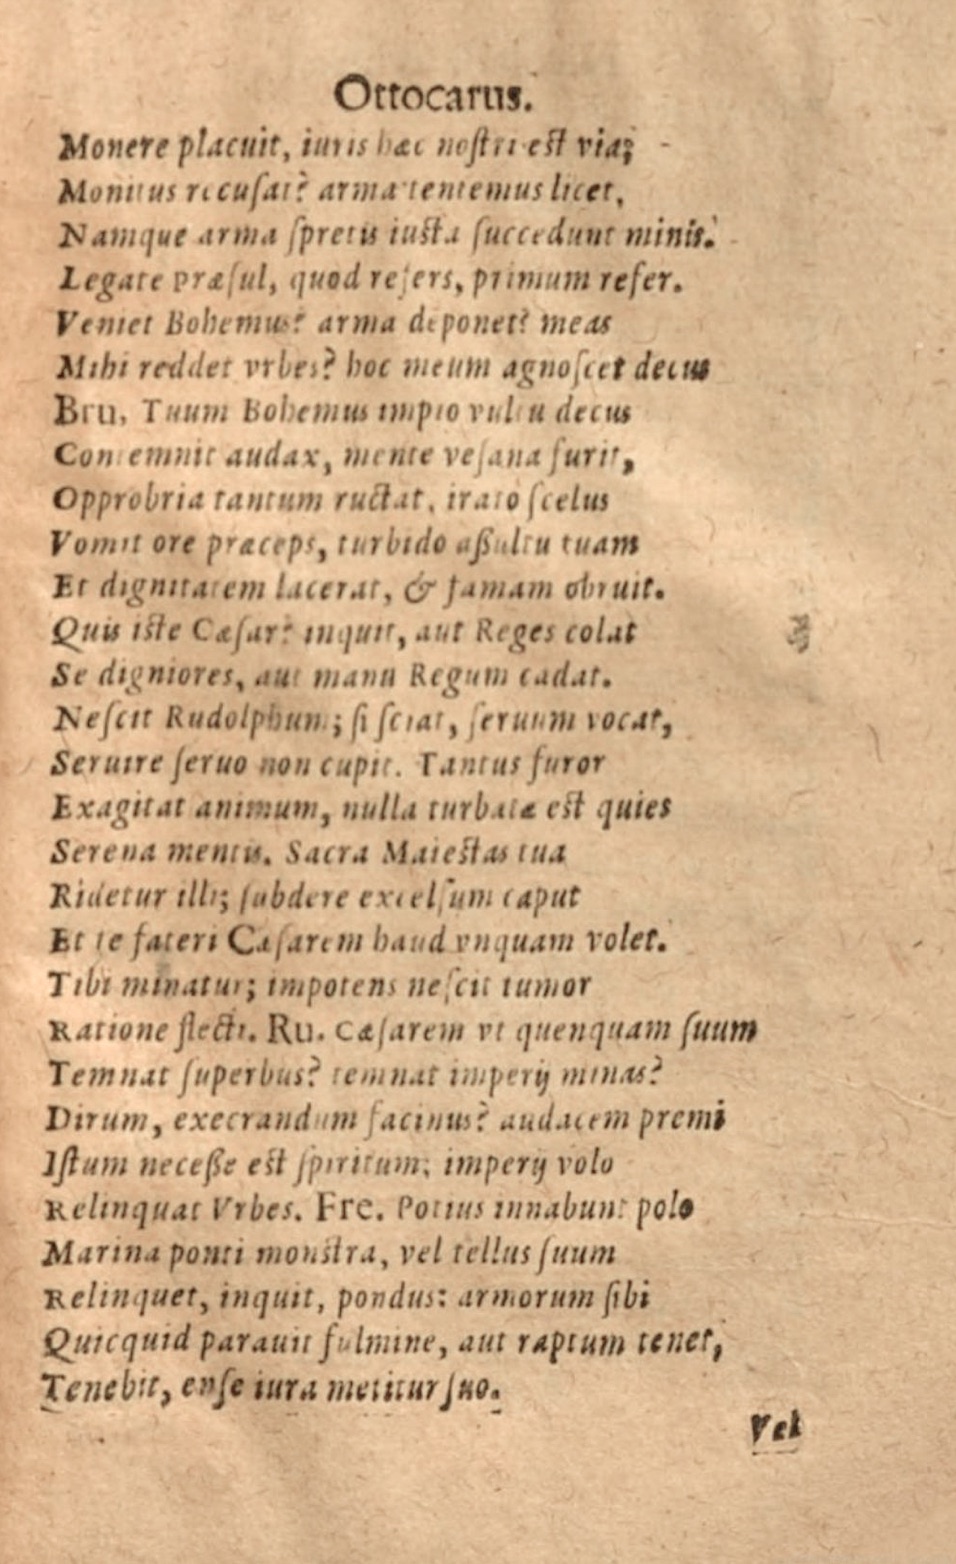 Ottocarus.
Monere placuit, iuris hæc nostri est via;
Monitus recusat? arma tentemus licet,
Namque arma spretis iusta succedunt minis.
Legate præsul, quod refers, primum refer.
Veniet Bohemus? arma deponet? meas
Mihi reddet vrbes? hoc meum agnoscet decus
Bru. Tuum Bohemus impio vultu decus
Contemnit audax, mente vesana furit,
Opprobria tantum ructat, irato scelus
Vomit ore præceps, turbido aßultu tuam
Et dignitatem lacerat, & famam obruit.
Quis iste Cæsar? inquit, aut Reges colat
Se digniores, aut manu Regum cadat.
Nescit Rudolphum; si sciat, seruum vocat,
Seruire seruo non cupit. Tantus furor
Exagitat animum, nulla turbatæ est quies
Serena mentis. Sacra Maiestas tua
Ridetur illi; subdere excelsum caput
Et te fateri Cæsarem haud vnquam volet.
Tibi minatur; impotens nescit tumor
Ratione flecti. Ru. Cæsarem vt quenquam suum
Temnat superbus? temnat imperij minas?
Dirum, execrandum facinus? audacem premi
Istum neceße est spiritum; imperij volo
Relinquat Vrbes. Fre. Potius innabunt polo
Marina ponti monstra, vel tellus suum
Relinquet, inquit, pondus: armorum sibi
Quicquid parauit fulmine, aut raptum tenet,
Tenebit, ense iura metitur suo.
Vel